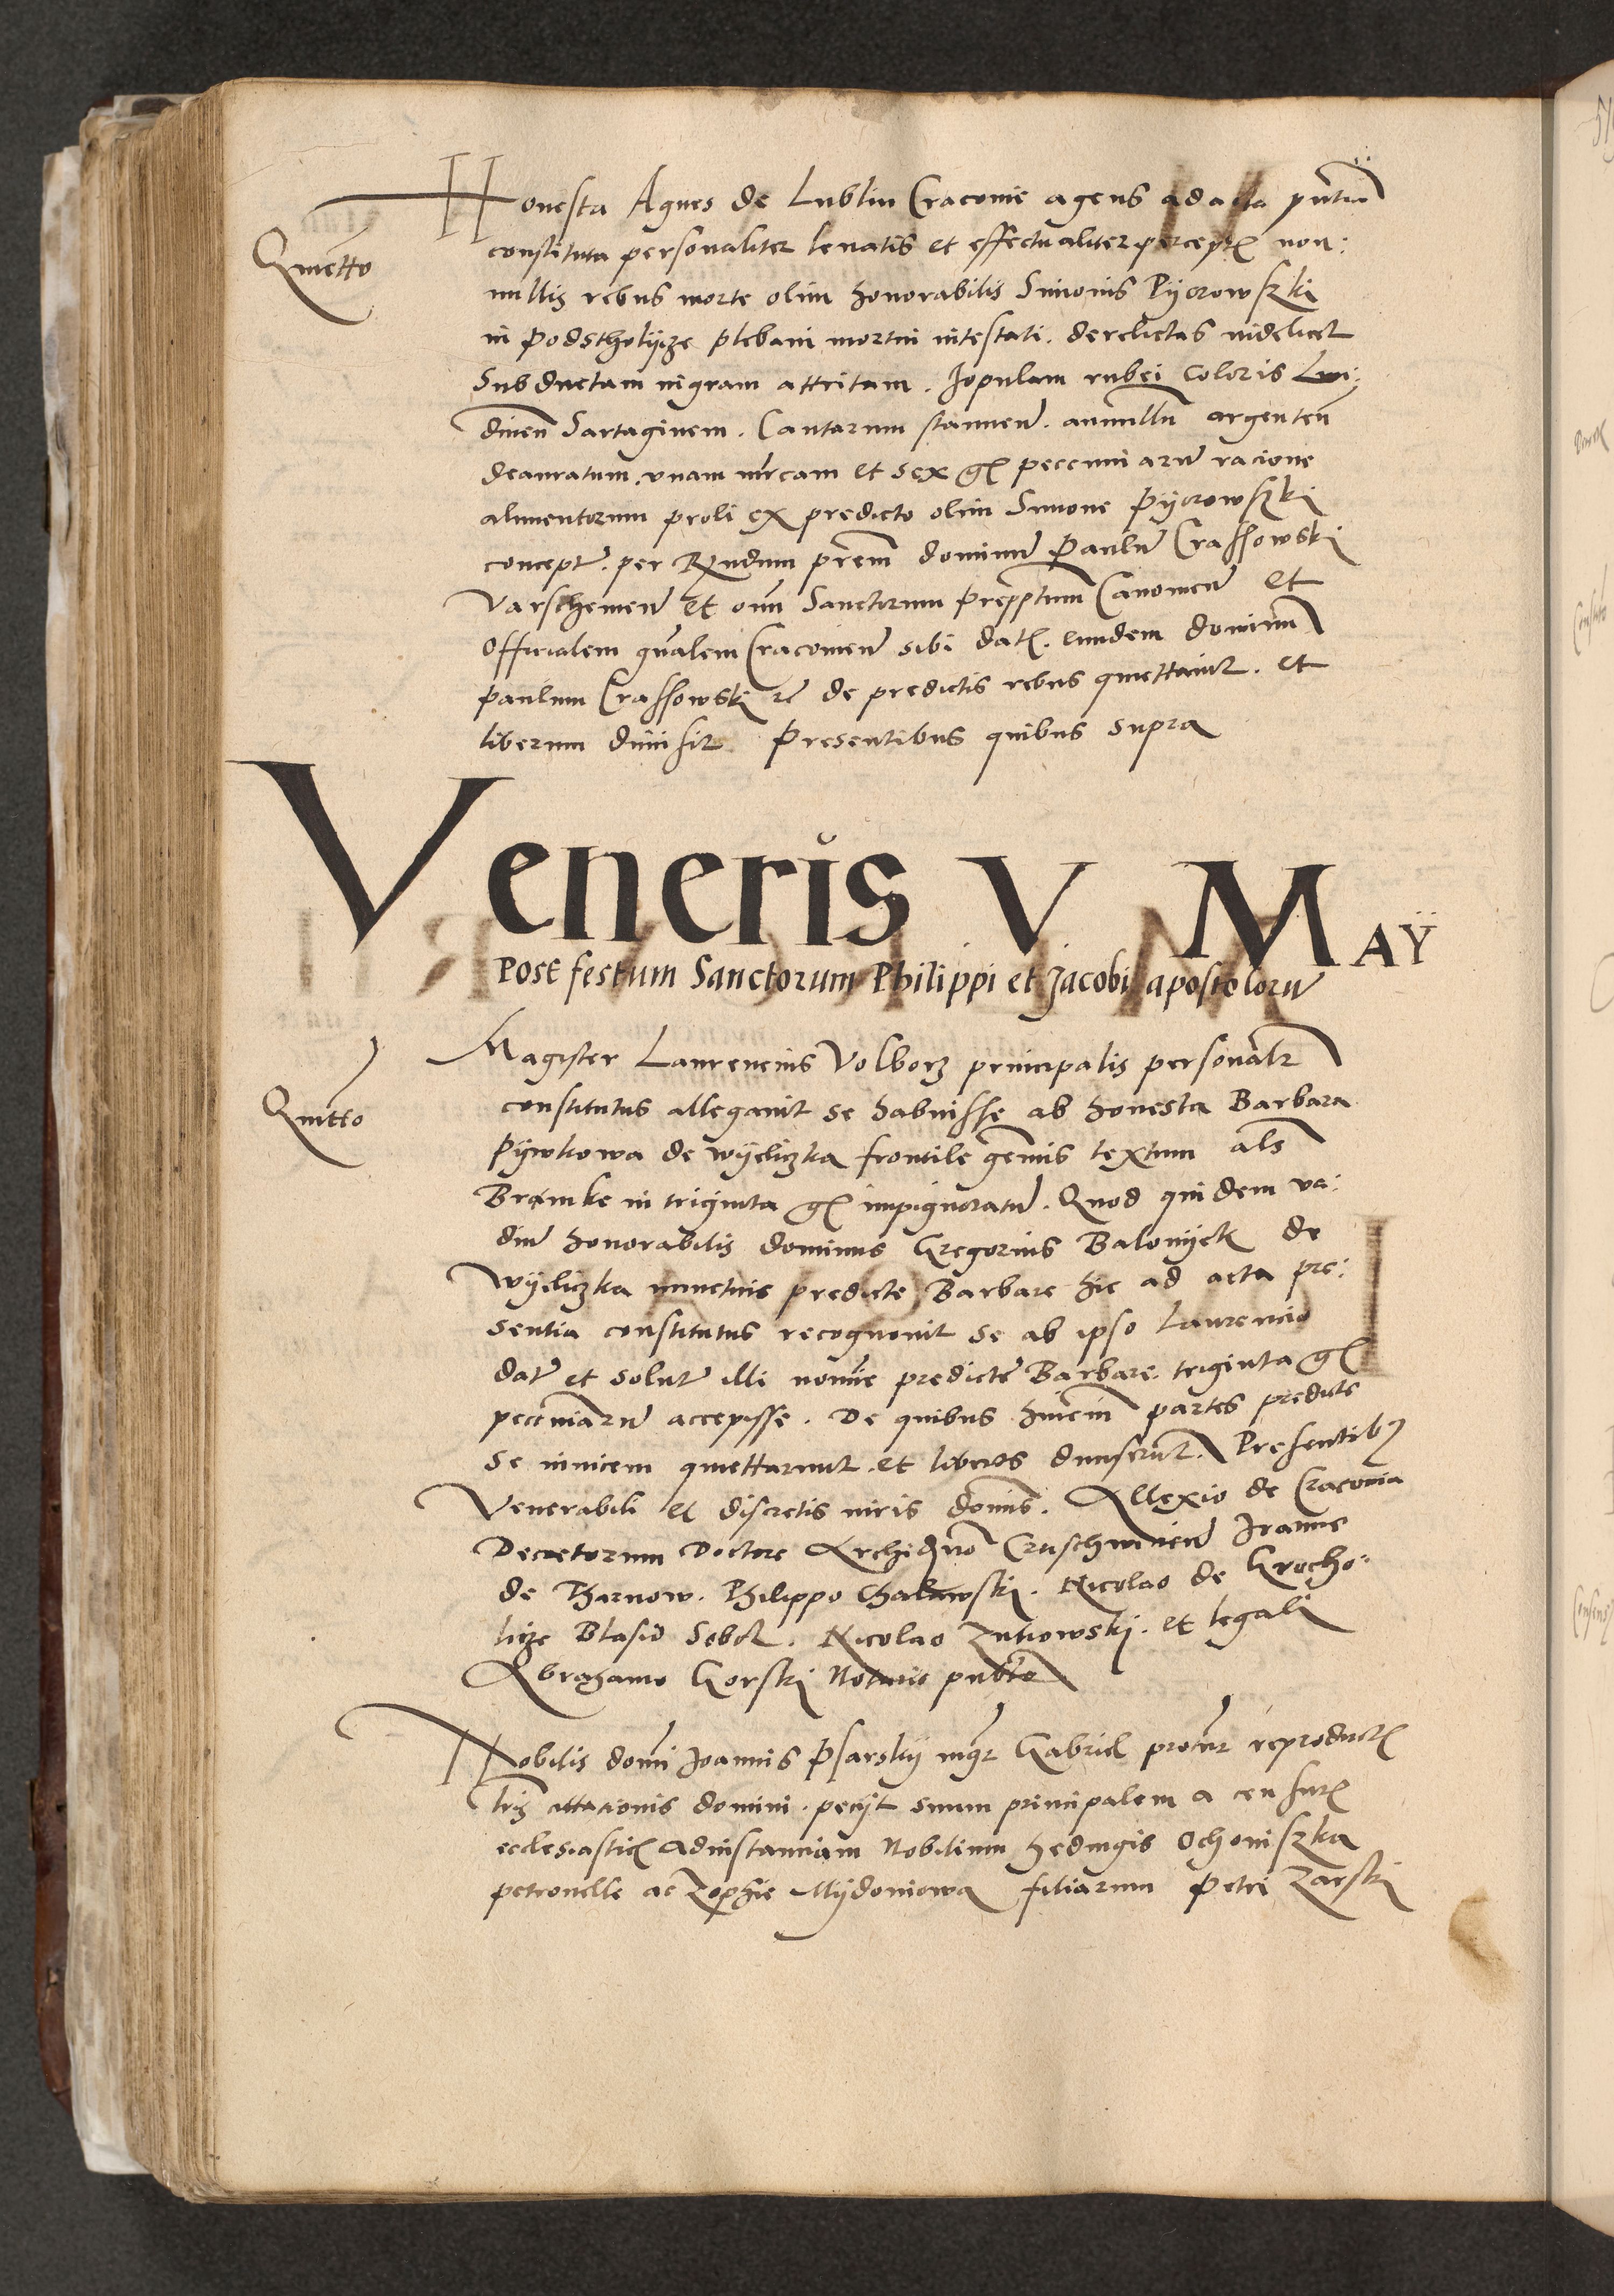 Honesta Agnes de Lublin Cracovie agens ad acta pñtia
Quietto
constituta personaliter levatis et effectualiter percept͛ non:
nullis rebus morte olim honorabilis Simonis Pijorowskij
in podstholijcze plebani mortui intestati. derelictas videlicet
Subductam nigram attritam. Jopulam rubei coloris
Sartaginem. Cantarum stanneu͂. annullu͂ argenteu͂
deauratum. unam mrcam et sex g͛ peccuniaru͂ racione
alimentorum proli ex predicto olim Simone Pijorowskij
concept͛. per Rndum prem̄ dominu͂ Paulu͂ Crassowskj
Varschevien͂ et om̄ Sanctorum prepptum Canonicu͂ et
Officialem gn̄alem Cracovien͂ sibi dat͛. eundem dominu͂
paulum Crassowskj de predictis rebus quiettavit. et
liberum dimisit Presentibus quibus supra
Veneris V MAŸ
Post festum Sanctorum Philippi et Jacobi apostoloru͂
Magister Laurencius Volborz principalis personal͛r
Quitto
constitutus allegavit se habuisse ab honesta Barbara
Pijwkowa de wijeliczka frontile gem̄is textum al͛s
Bramke in triginta g͛ impignoratu͂. Quod quidem va:
diu͂ honorabilis dominus Gregorius Balonijek de
wijeliczka predicte Barbare hic ad acta pre:
sentia constitutus recognovit se ab ipso Laurencio
dat͛ et solut͛ illi nom̄ie predicte Barbare triginta g͛
pecc̄niaru͂ accepisse. De quibus hincin̄ partes predicte
se invicem quiettarunt. et lib̄ros dimiserūt. Presentibꝫ
Venerabili et discretis viris dom̄is. Allexio de Cracovia
Decretorum Doctore Archidno Cruschvicien͂ Joanne
de Tharnow. Philippo Nicolao de Grocho:
licze Blasio Sobol. Nicolao Zuthowskj. et legalj
Abrahamo Gorskj Notario pub͛co
Nobilis dom̄i Joannis Psarskij mg͛r Gabriel procūr reproduct͛
l͛ris citacionis domini. pecijt suum principalem a censur͛
ecclesiastic͛ adinstanciam Nobilium hedvigis Ochoniszka
petronelle ac Zophie Mijdoniowa filiarum Petri Zarskj